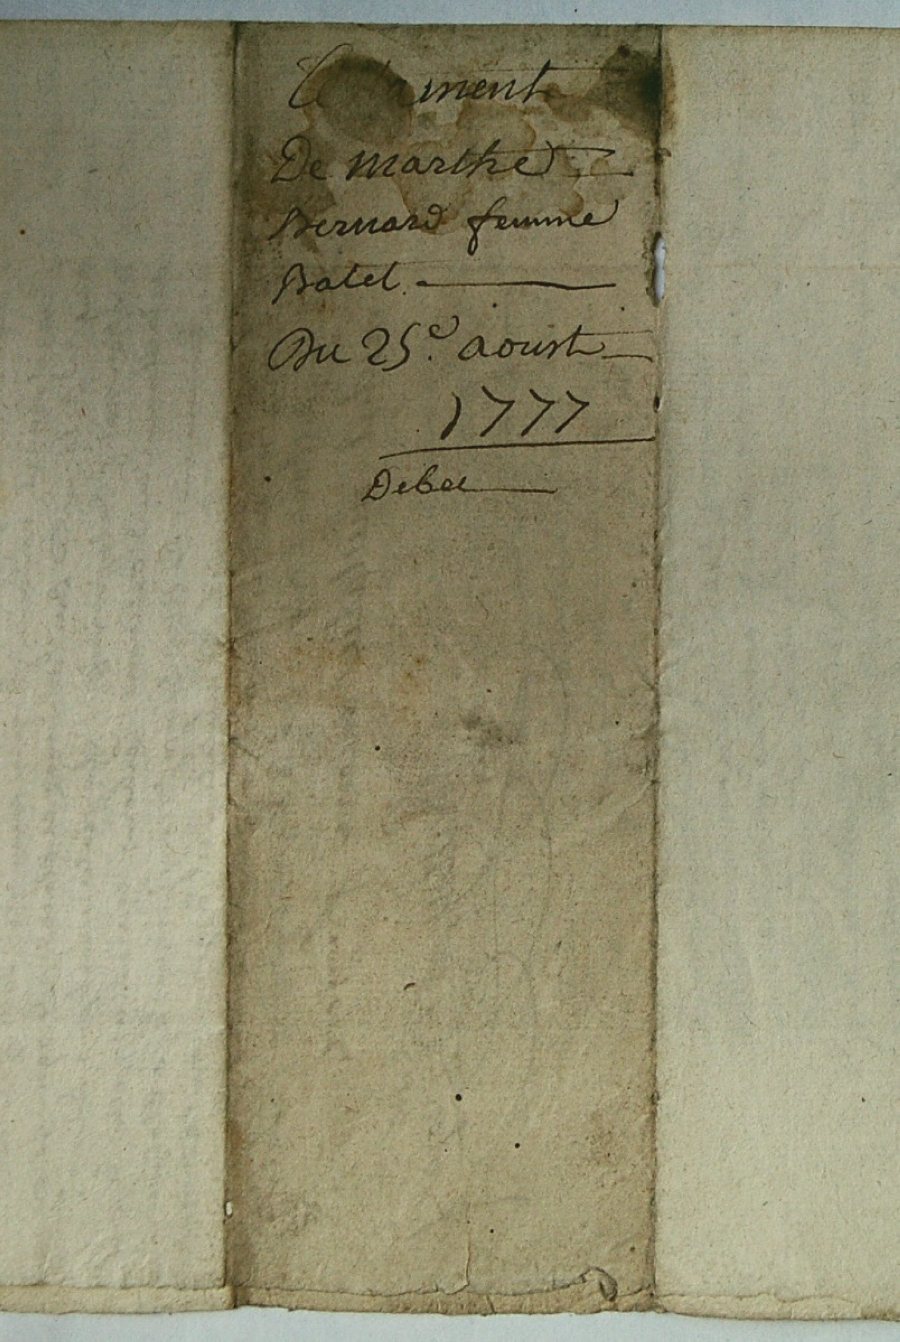 De Marthe
Bernard femme
Batel
Du 25e. aoust
1777